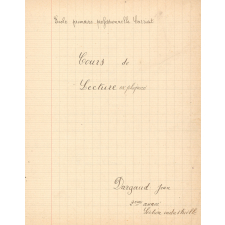 École primaire professionnelle
Cours de
Lecture expliquée
Dargaud Jean
3ème année
Section industrielle